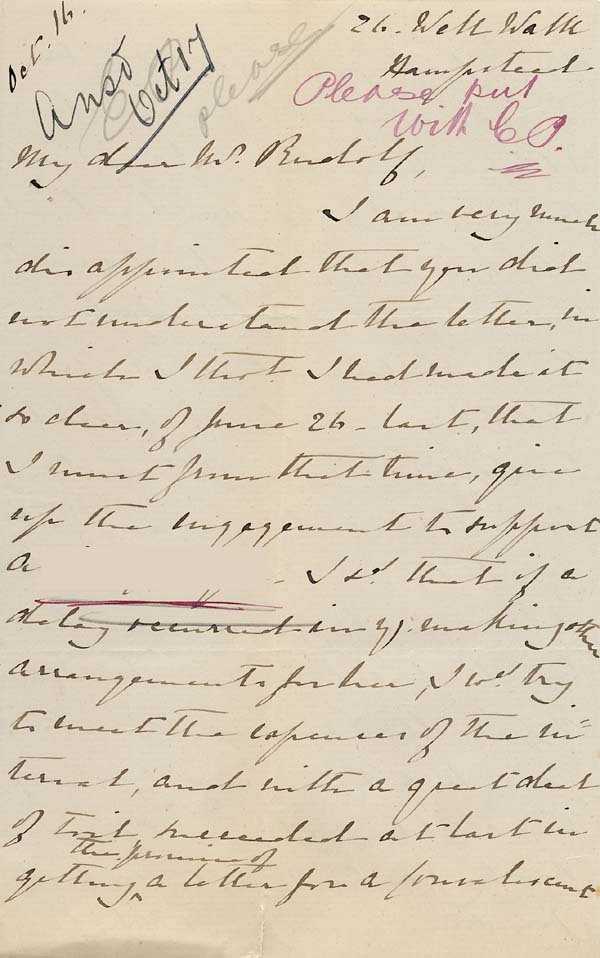 Oct. 16.
Ansd
Oct 17
please
26. Well Walk
Hampstead
Please put
with C P.
My dear Mr. Rudolf,
I am very much
disappointed that you did
not understand the letter, in
which I thot. I had made it
so clear, of June 26 - last, that
I must from that time, give
up the engagement to support
a
- I sd. that if a
delay occurred in yr. making other
arrangements for her, I wd. try
to meet the expences of the in-
terval, and with a great deal
of toil, succeeded at last in
the promise of
getting a letter for a Convalescent